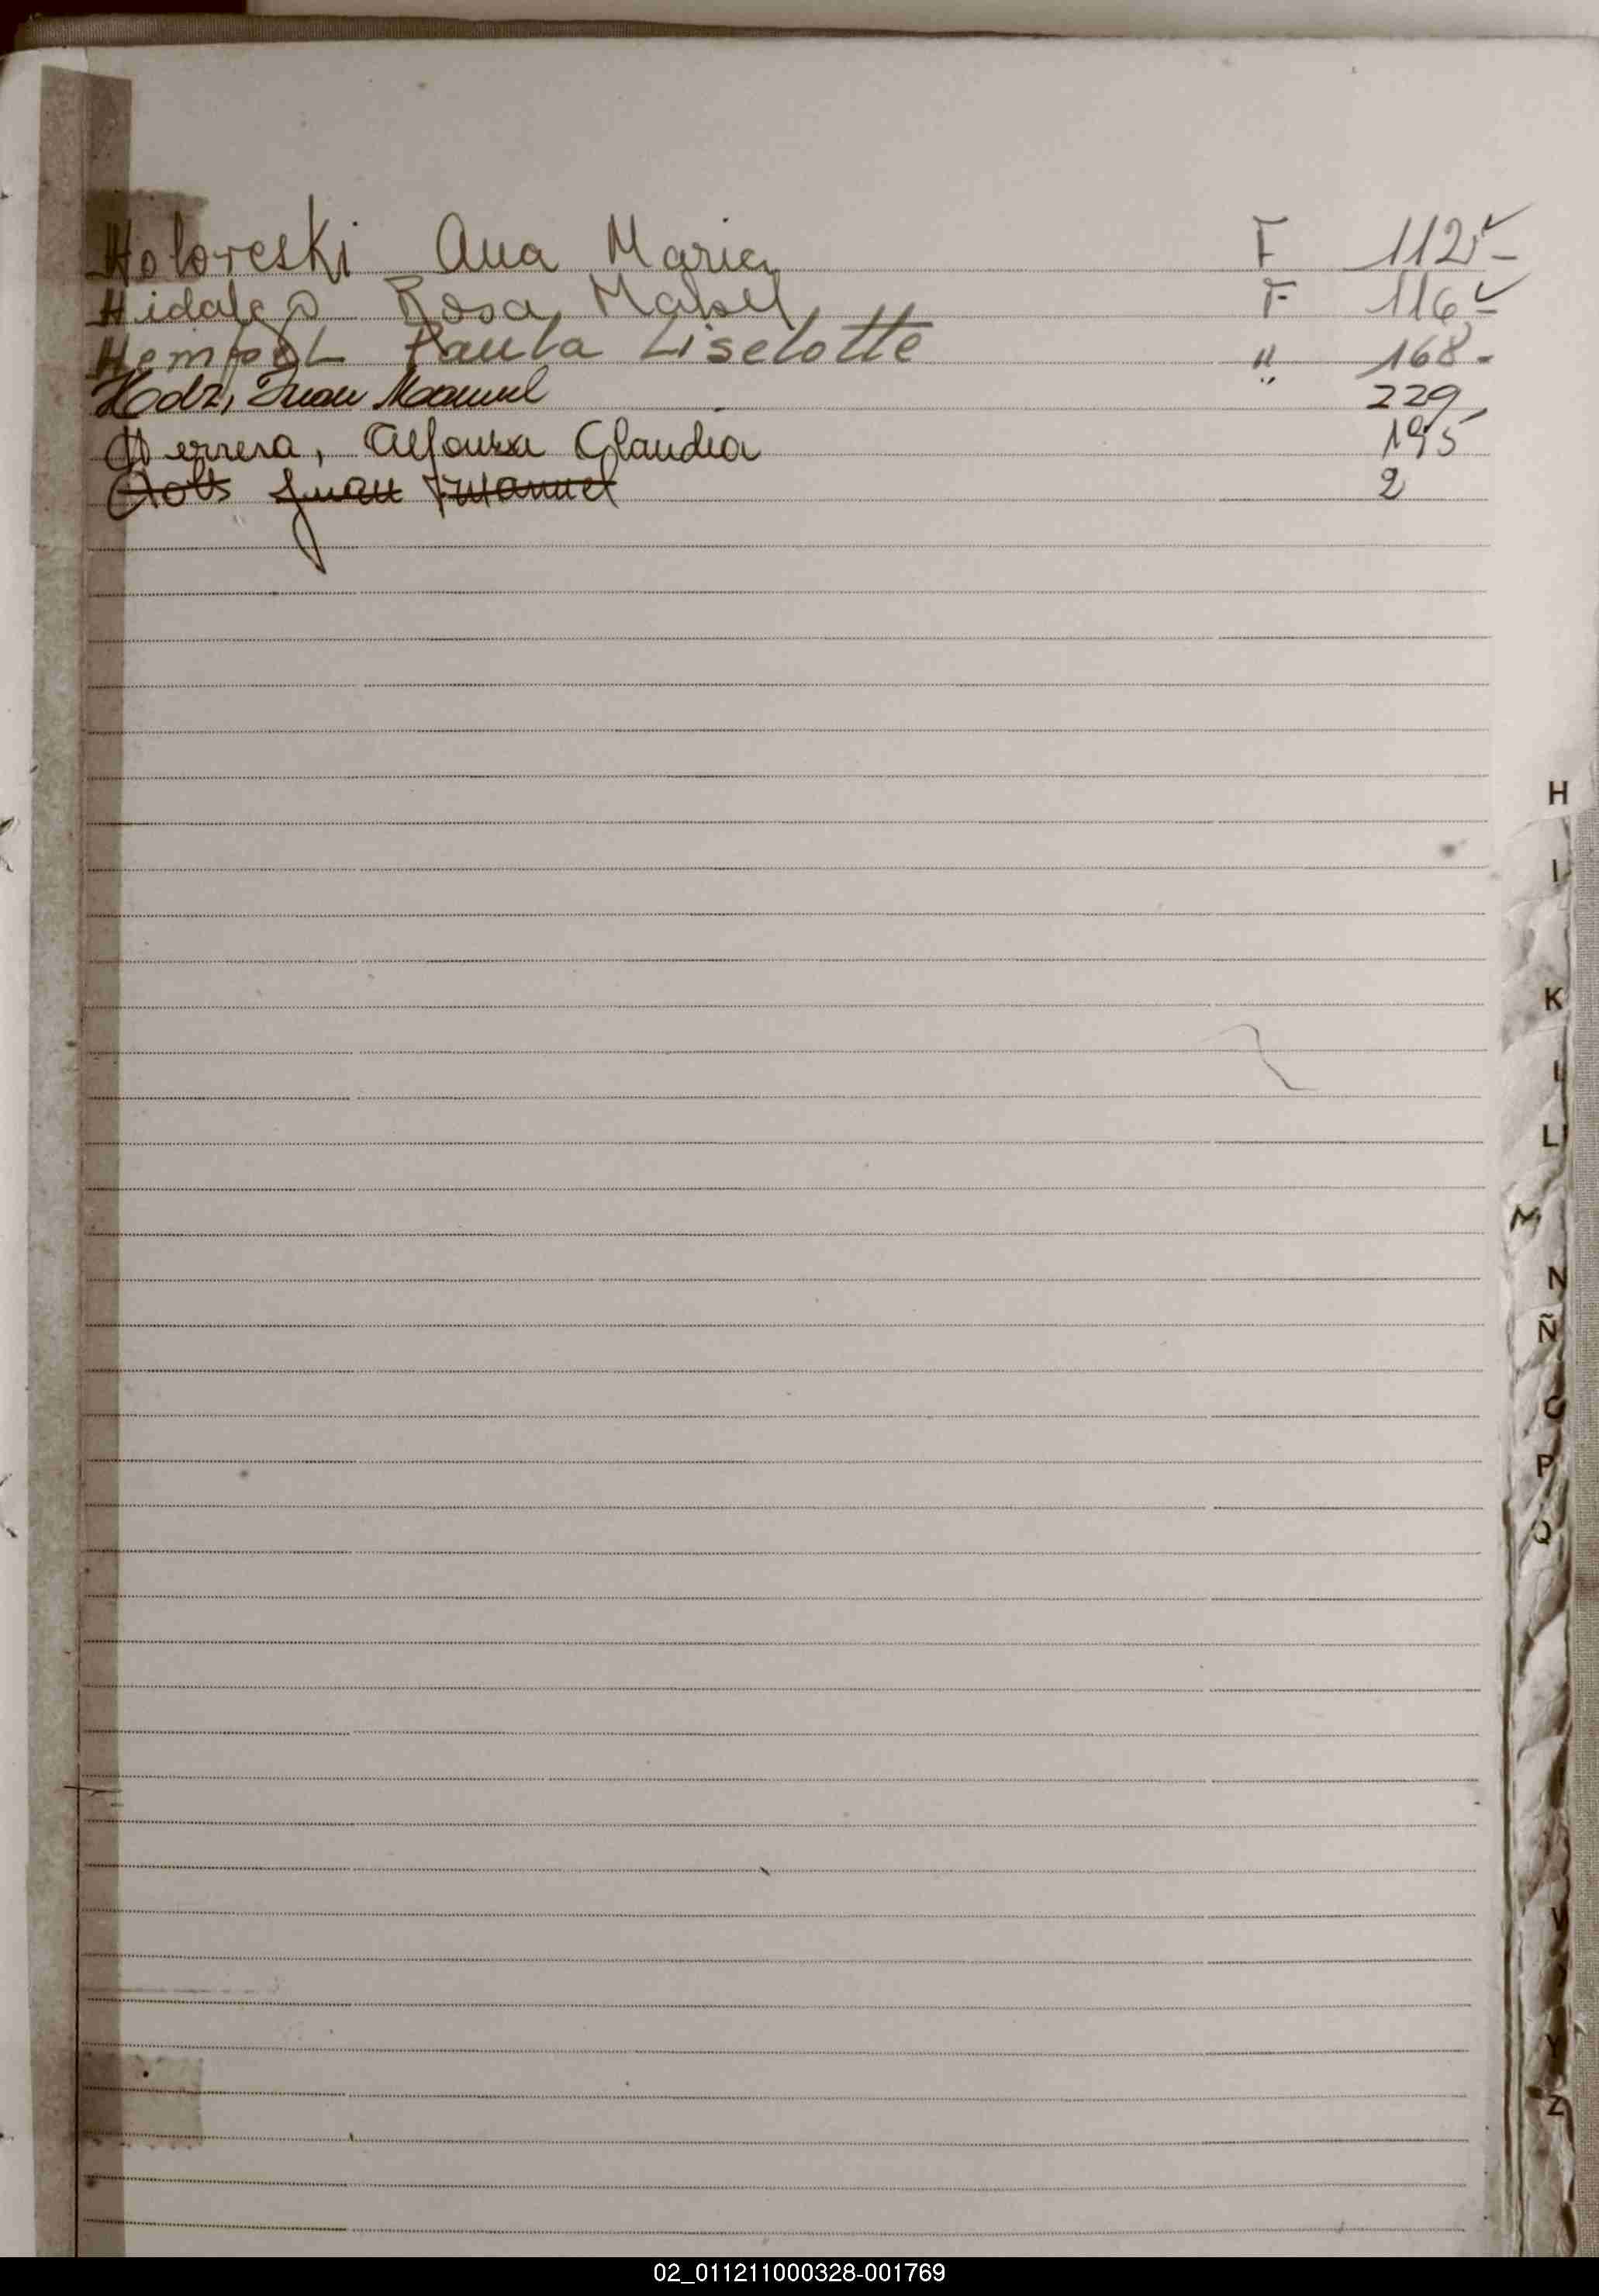 Holoveski Ana Maria F 112 ✓ -
Hidalgo Rosa Mabel F 116 ✓ -
Paula Liselotte " 168 -
Holz, Juan Manuel " 229
Herrera, Alfonza Claudia 195
Holts Juan Manuel 2
H
I
K
L
Ll
M
N
Ñ
O
P
Q
V
Y
Z
02_011211000328-001769